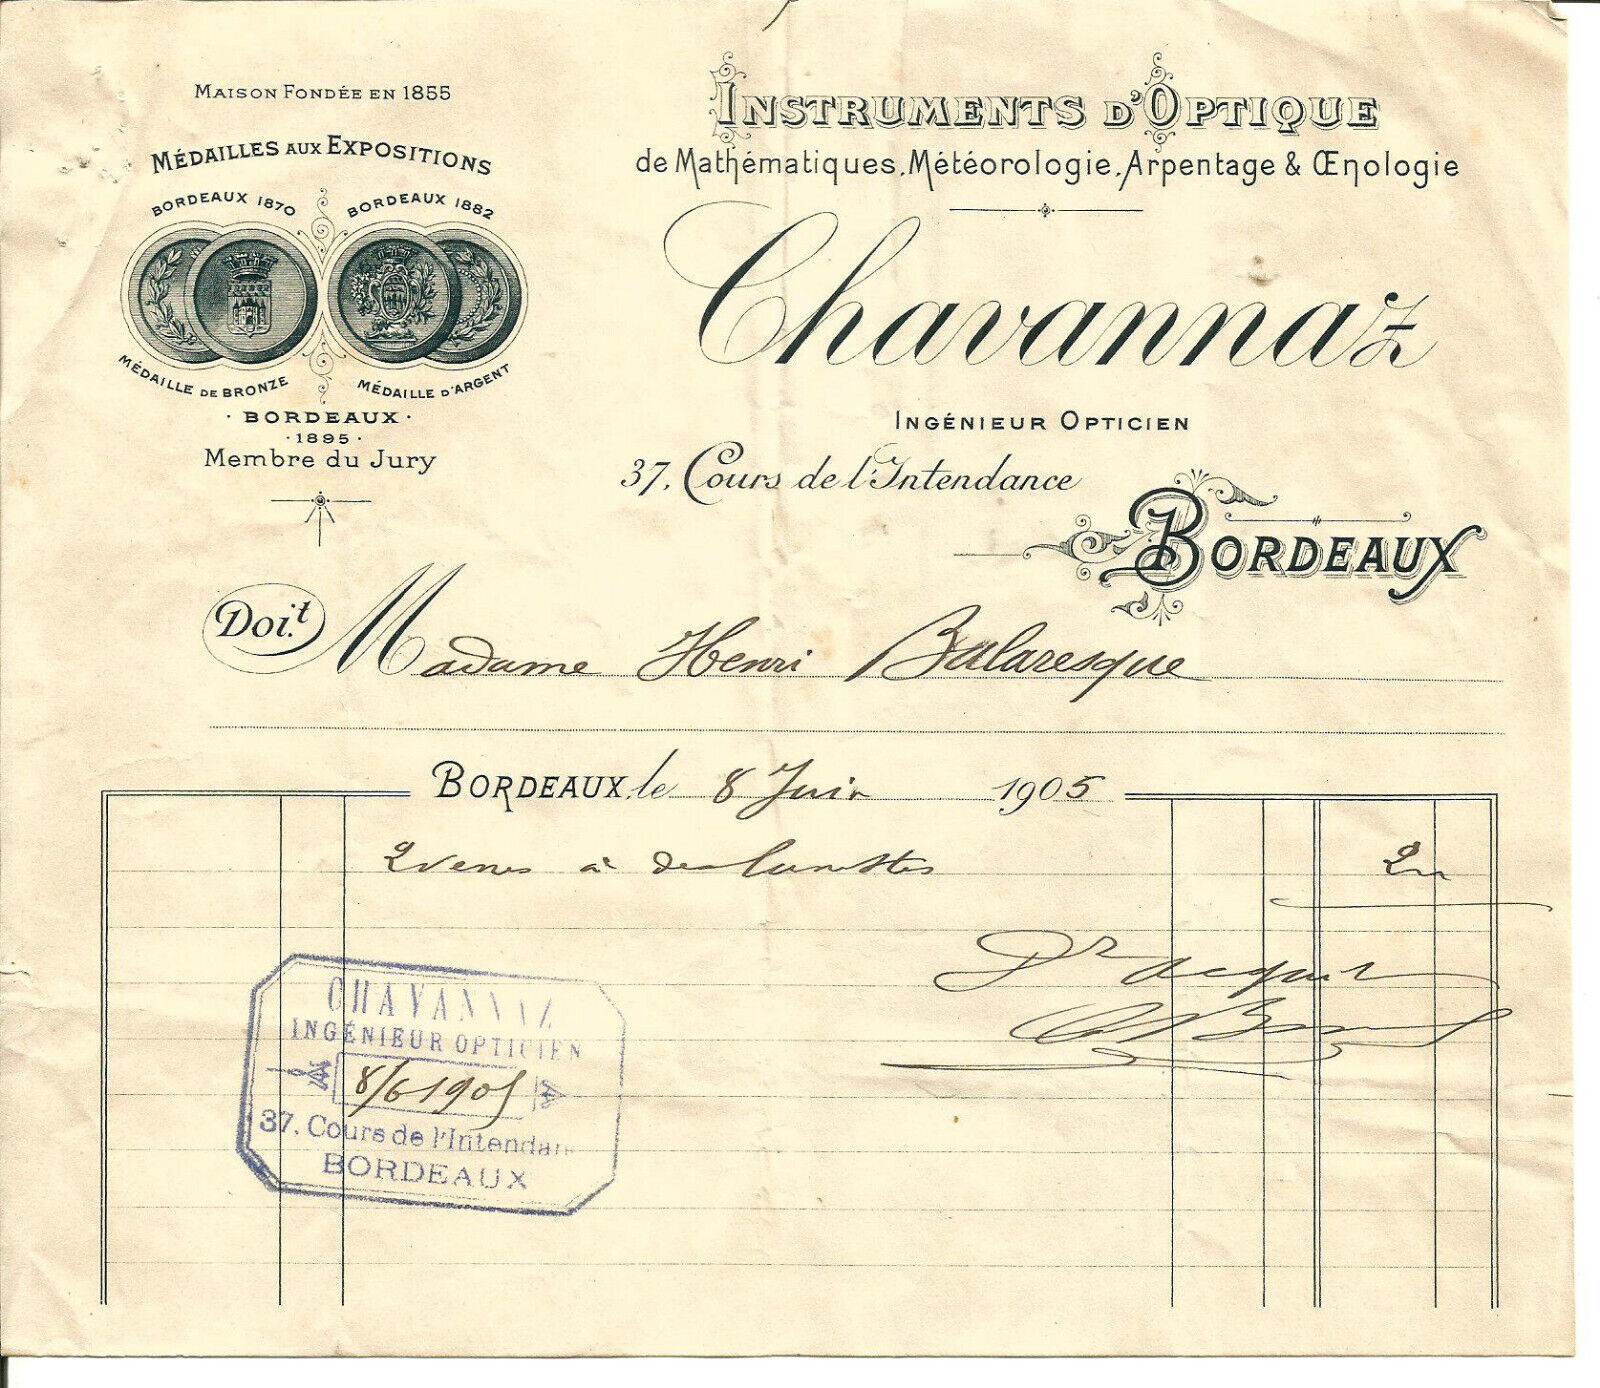 MAISON FONDÉE EN 1855
MÉDAILLES AUX EXPOSITIONS
BORDEAUX 1870 BORDEAUX 1882
MÉDAILLE DE BRONZE MÉDAILLE D'ARGENT
· BORDEAUX ·
· 1895 ·
Membre du Jury
INSTRUMENTS D'OPTIQUE
de Mathématiques, Météorologie, Arpentage & Œnologie
Chavannaz
INGÉNIEUR OPTICIEN
37, Cours de l'Intendance
BORDEAUX
Doit Madame Henri Balaresque
BORDEAUX, le 8 Juin 1905
2 verres à des lunettes 2 "
Pr acquit
CHAVANNAZ
INGÉNIEUR OPTICIEN
8/6 1905
37, Cours de l'Intendan
BORDEAUX